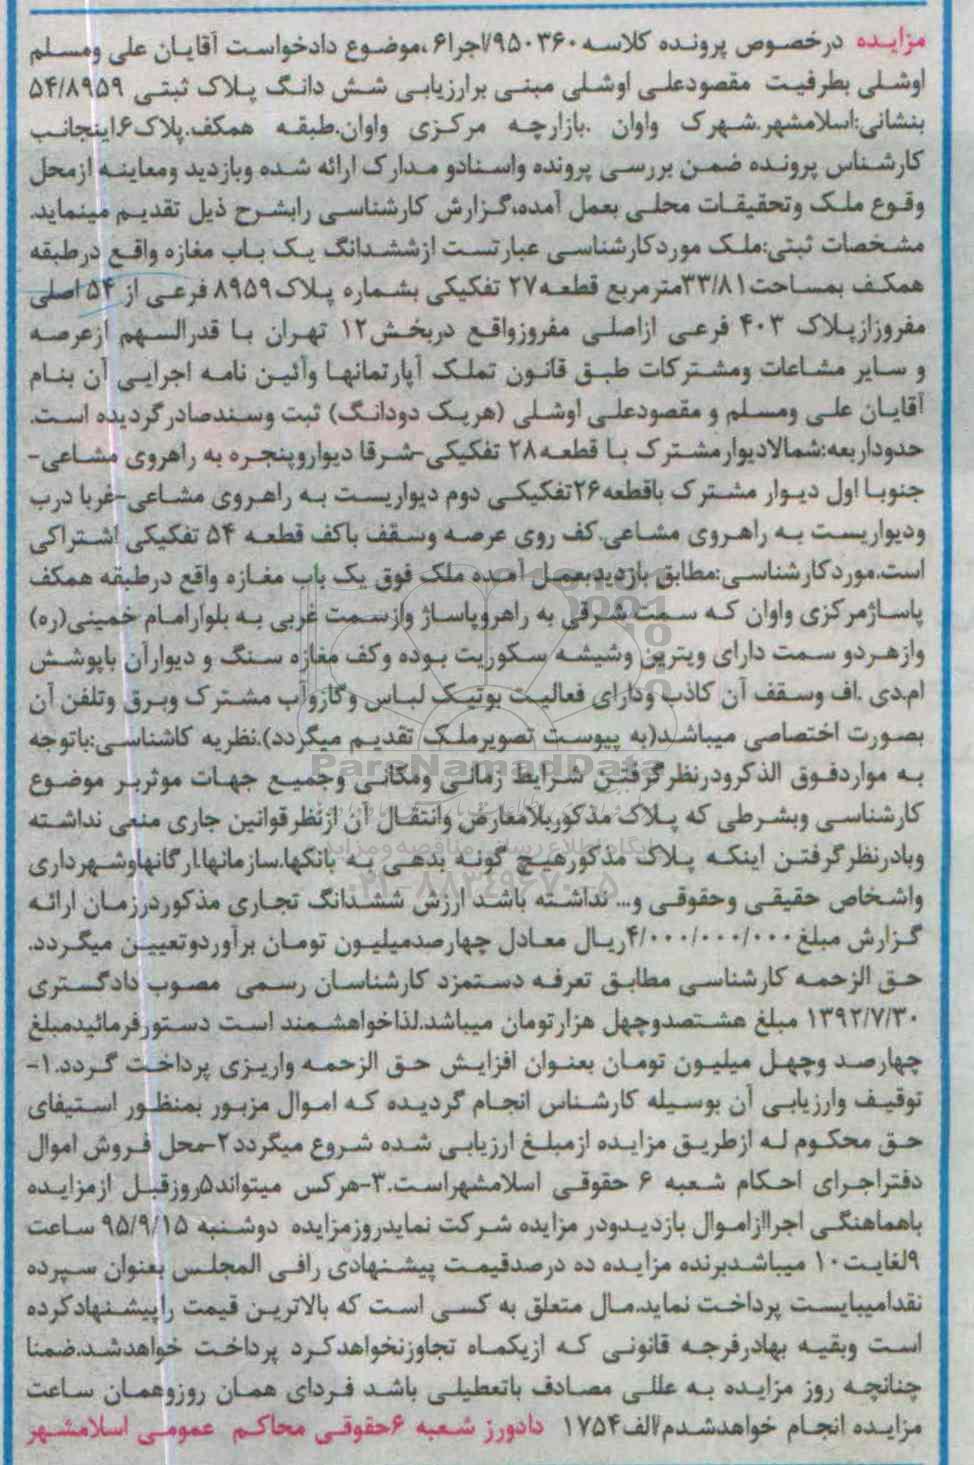 مزایده درخصوص پرونده کلاسه ۹۵۰۳۶۰/اجرا۶ ،موضوع دادخواست آقایان علی ومسلم
اوشلی بطرفیت مقصودعلی اوشلی مبنی برارزیابی شش دانگ پلاک ثبتی ۵۴/۸۹۵۹
بنشانی:اسلامشهر.شهرک واوان .بازارچه مرکزی واوان.طبقه همکف.پلاک۶.اینجانب
کارشناس پرونده ضمن بررسی پرونده واسنادو مدارک ارائه شده وبازدید ومعاینه ازمحل
وقوع ملک وتحقیقات محلی بعمل آمده،گزارش کارشناسی رابشرح ذیل تقدیم مینماید.
مشخصات ثبتی:ملک موردکارشناسی عبارتست ازششدانگ یک باب مغازه واقع درطبقه
همکف بمساحت۳۳/۸۱مترمربع قطعه۲۷ تفکیکی بشماره پلاک۸۹۵۹ فرعی از ۵۴ اصلی
مفروزازپلاک ۴۰۳ فرعی ازاصلی مفروزواقع دربخش۱۲ تهران با قدرالسهم ازعرصه
و سایر مشاعات ومشترکات طبق قانون تملک آپارتمانها وآئین نامه اجرایی آن بنام
آقایان علی ومسلم و مقصودعلی اوشلی (هریک دودانگ) ثبت وسندصادرگردیده است.
حدوداربعه:شمالادیوارمشترک با قطعه۲۸ تفکیکی-شرقا دیواروپنجره به راهروی مشاعی-
جنوبا اول دیوار مشترک باقطعه۲۶تفکیکی دوم دیواریست به راهروی مشاعی-غربا درب
ودیواریست به راهروی مشاعی.کف روی عرصه وسقف باکف قطعه ۵۴ تفکیکی اشتراکی
است.موردکارشناسی:مطابق بازدیدبعمل آمده ملک فوق یک باب مغازه واقع درطبقه همکف
پاساژمرکزی واوان که سمت شرقی به راهروپاساژ وازسمت غربی به بلوارامام خمینی(ره)
وازهردو سمت دارای ویترین وشیشه سکوریت بوده وکف مغازه سنگ و دیوارآن باپوشش
ام.دی .اف وسقف آن کاذب ودارای فعالیت بوتیک لباس وگازوآب مشترک وبرق وتلفن آن
بصورت اختصاصی میباشد(به پیوست تصویرملک تقدیم میگردد).نظریه کاشناسی:باتوجه
ParsNamadData
به مواردفوق الذکرودرنظرگرفتن شرایط زمانی ومکانی وجمیع جهات موثربر موضوع
کارشناسی وبشرطی که پلاک مذکوربلامعارض وانتقال آن ازنظرقوانین جاری منعی نداشته
وبادرنظرگرفتن اینکه پلاک مذکورهیچ گونه بدهی به بانکها.سازمانها.ارگانهاوشهرداری
۰۲۱-۸۸۳۴۹۶۷۰-۵
واشخاص حقیقی وحقوقی و... نداشته باشد ارزش ششدانگ تجاری مذکوردرزمان ارائه
گزارش مبلغ ۴/۰۰۰/۰۰۰/۰۰۰ریال معادل چهارصدمیلیون تومان برآوردوتعیین میگردد.
حق الزحمه کارشناسی مطابق تعرفه دستمزد کارشناسان رسمی مصوب دادگستری
۱۳۹۲/۷/۳۰ مبلغ هشتصدوچهل هزارتومان میباشد.لذاخواهشمند است دستورفرمائیدمبلغ
چهارصد وچهل میلیون تومان بعنوان افزایش حق الزحمه واریزی پرداخت گردد.۱-
توقیف وارزیابی آن بوسیله کارشناس انجام گردیده که اموال مزبور بمنظور استیفای
حق محکوم له ازطریق مزایده ازمبلغ ارزیابی شده شروع میگردد۲-محل فروش اموال
دفتراجرای احکام شعبه ۶ حقوقی اسلامشهراست.۳-هرکس میتواند۵روزقبل ازمزایده
باهماهنگی اجراازاموال بازدیدودر مزایده شرکت نمایدروزمزایده دوشنبه ۹۵/۹/۱۵ ساعت
۹لغایت۱۰ میباشدبرنده مزایده ده درصدقیمت پیشنهادی رافی المجلس بعنوان سپرده
نقدامیبایست پرداخت نماید.مال متعلق به کسی است که بالاترین قیمت راپیشنهادکرده
است وبقیه بهادرفرجه قانونی که ازیکماه تجاوزنخواهدکرد پرداخت خواهدشد.ضمنا
چنانچه روز مزایده به عللی مصادف باتعطیلی باشد فردای همان روزوهمان ساعت
مزایده انجام خواهدشدم/الف۱۷۵۴ دادورز شعبه ۶حقوقی محاکم عمومی اسلامشهر